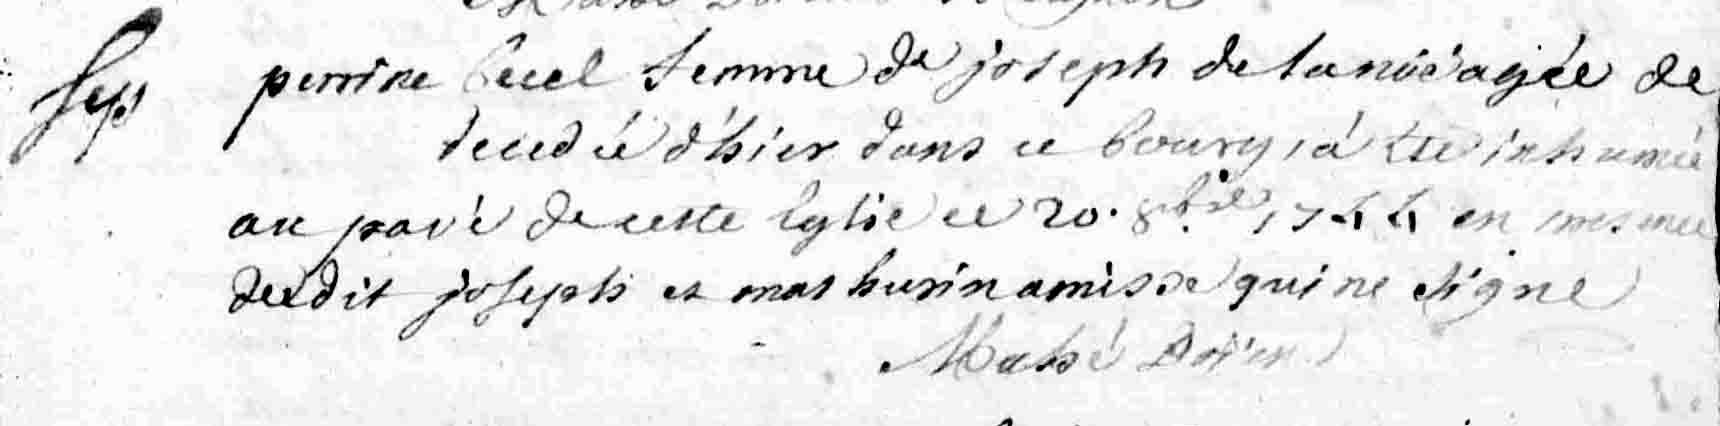 Sep perrine becel femme de joseph de la noë agée de
decedée d'hier dans ce bourg, a été inhumée
au pavé de cette Eglise ce 20. 8bre 1744 en
dudit joseph et mathurin amisse qui ne signe
Mahé Doÿen